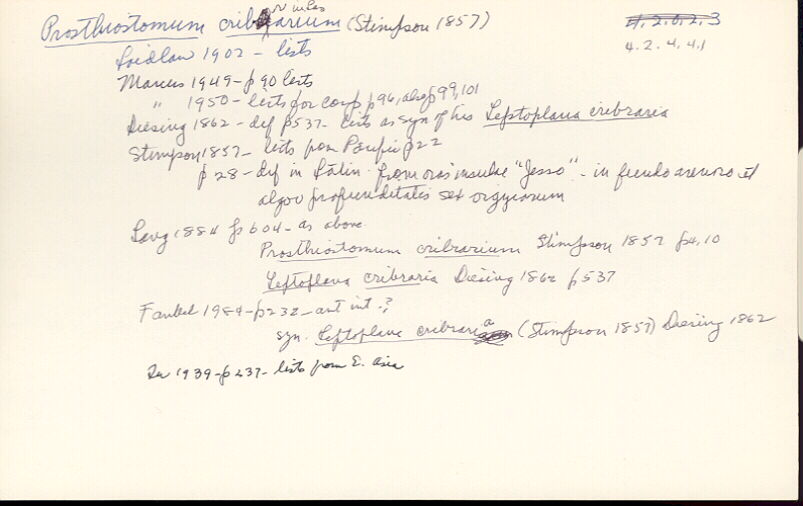 Prosthiostomum cribrarium (Stimpson 1857)
4.2.0.2.3
4.2.4.4.1
Laidlaw 1902 - lists
Marcus 1949 - p 90 lists
" 1950 - lists for comp p 96, also p 99, 101
Diesing 1862 - def p 537 - lists as syn of his Leptoplana cribraria
Stimpson 1857 - lists from Pacific p 22
p 28 - def in Latin - from oras insulae "Jesso" - in fundo arenoso et
algoso profunditatis sex orgyiarum
Lang 1884 p 604 - as above
Prosthiostomum cribrarium Stimpson 1857 p 4, 10
Leptoplana cribraria Diesing 1862 p 537
Faubel 1984 - p 232 - ant int - ?
syn. Leptoplana cribraria (Stimpson 1857) Diesing 1862
1939 - p 237 - lists from E. Asia